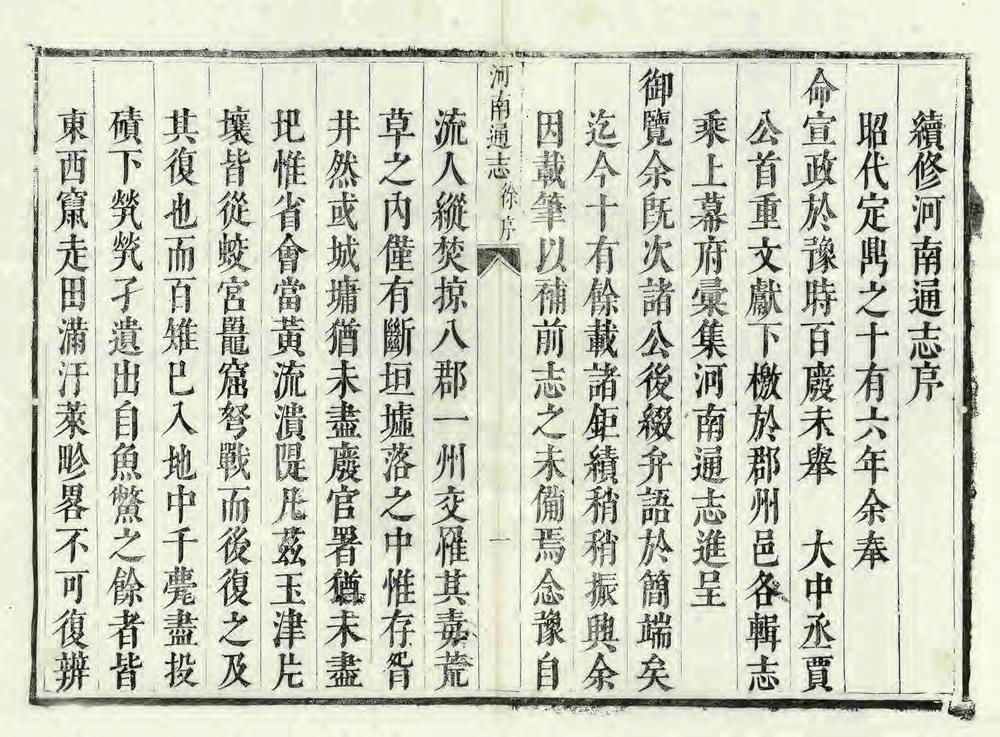 續修河南通志序
昭代定鼎之十有六年余奉
命宣政於豫時百廢未舉　大中丞賈
公首重文獻下檄於郡州邑各輯志
乘上幕府彙集河南通志進呈
御覽余既次諸公後綴弁語於簡端矣
迄今十有餘載諸鉅績稍稍振興余
因載筆以補前志之未備焉念豫自
河南通志　徐序　一
流人縱焚掠八郡一州交罹其毒荒
草之內僅有斷垣墟落之中惟存眢
井然或城墉猶未盡廢官署猶未盡
圯惟省會當黃流潰隄凡茲玉津片
壤皆從蛟宮鼉窟弩戰而後復之及
其復也而百雉已入地中千甍盡投
磧下煢煢孑遺出自魚鱉之餘者皆
東西竄走田滿汙萊畛畧不可復辨